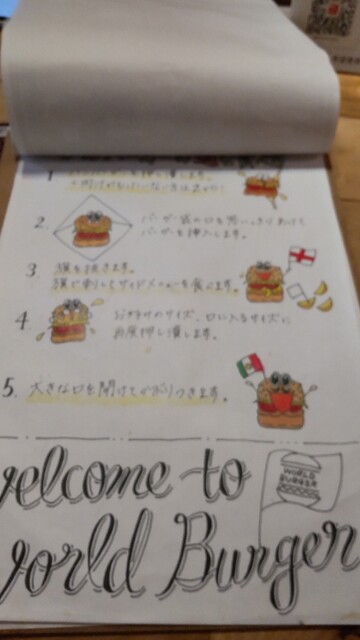 1
押し潰します。
2.
バーガー袋の口を思いっきりあけて
バーガーを挿入します。
3.
旗を抜きます。
旗で刺してサイドメニューを食べます。
4.
お好みのサイズ、口に入るサイズに
再度押し潰します。
5.
大きな口を開けてかぶりつきます。
Welcome to
World Burger
WORLD
BURGER